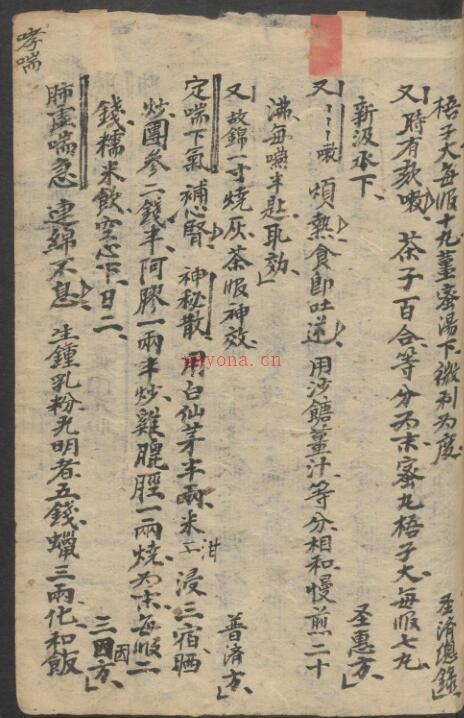 哮喘
梧子大每服十九薑蜜湯下微利为度 圣濟總錄
又 時有痰嗽 茶子百合等分为末蜜丸梧子大每服七丸
新汲水下 圣惠方
又 嗽 煩熱食即吐逆 用沙餹薑汁等分相和慢煎二十
沸每嚥半匙取効
又 故錦一寸燒灰茶服神效 普濟方
定喘下氣 補心腎 神秘散 用白仙茅半兩米泔浸三宿晒
炒團參二錢半阿膠一兩半炒雞膍胵一兩燒为末每服二
錢糯米飲空心下日二 三因方
肺虛喘急 連綿不息 生鍾乳粉光明者五錢蠟三兩化和飯
nayona.cn